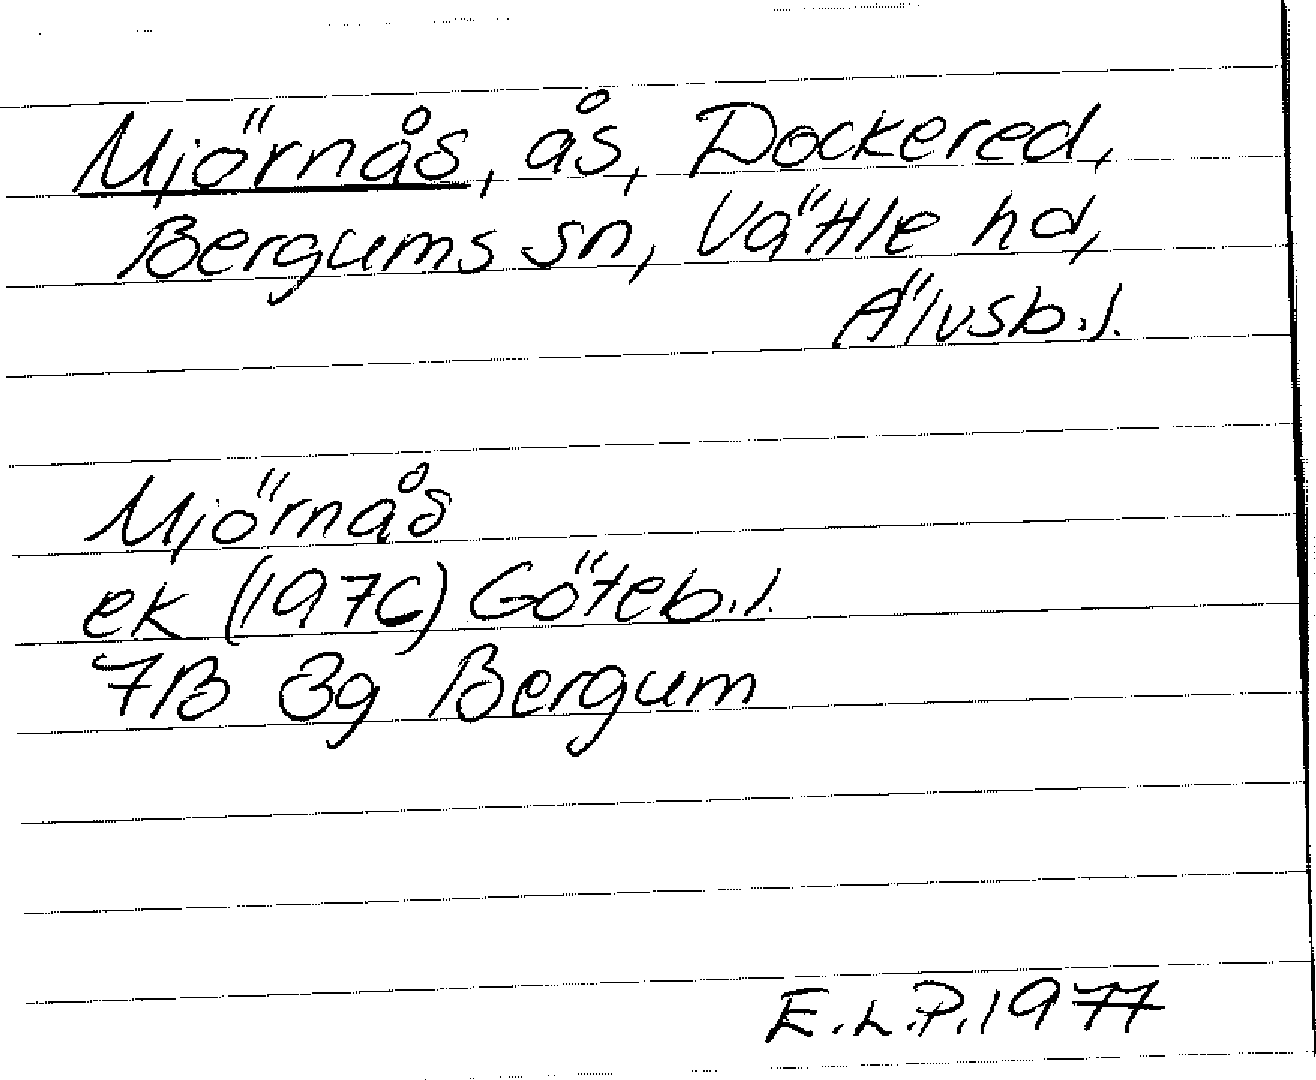 Mjörnås, ås, Dockered,
Bergums sn, Vättle hd,
Älvsb.l.
Mjörnås
ek (1976) Göteb.l.
7B 3g Bergum
E.L.P. 1977